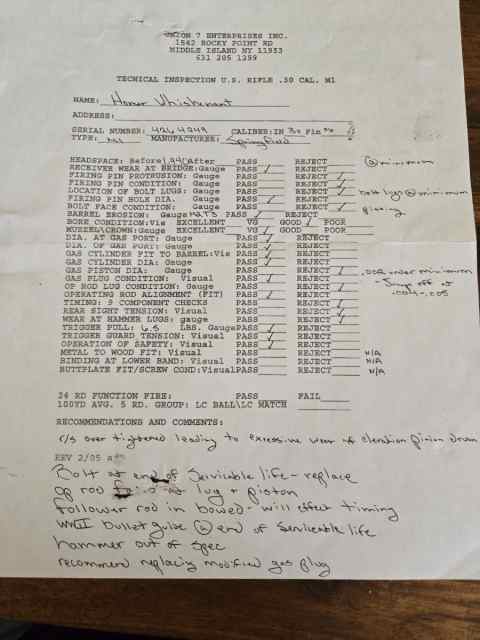 UNION 7 ENTERPRISES INC.
1542 ROCKY POINT RD
MIDDLE ISLAND NY 11953
631 205 1299
TECNICAL INSPECTION U.S. RIFLE .30 CAL. M1
NAME: Homer Whishenant
ADDRESS:
SERIAL NUMBER: CALIBER:IN
TYPE: M1 MANUFACTURER: Springfield
HEADSPACE: Before After PASS REJECT @ minimum
RECEIVER WEAR AT BRIDGE:Gauge PASS ✓ REJECT
FIRING PIN PROTRUSION: Gauge PASS REJECT ✓
FIRING PIN CONDITION: Gauge PASS REJECT
LOCATION OF BOLT LUGS: Gauge PASS REJECT ✓ bolt lugs @ minimum
FIRING PIN HOLE DIA. Gauge PASS ✓ REJECT
BOLT FACE CONDITION: Gauge PASS REJECT ✓ pitting
BARREL EROSION: Gauge PASS ✓ REJECT
BORE CONDITION:Vis EXCELLENT VG GOOD ✓ POOR
MUZZEL\CROWN:Gauge EXCELLENT VG ✓ GOOD POOR
DIA. AT GAS PORT: Gauge PASS ✓ REJECT
DIA. OF GAS PORT: Gauge PASS ✓ REJECT
GAS CYLINDER FIT TO BARREL:Vis PASS ✓ REJECT
GAS CYLINDER DIA: Gauge PASS ✓ REJECT
GAS PISTON DIA: Gauge PASS REJECT ✓ .002 under minimum
GAS PLUG CONDITION: Visual PASS ✓ REJECT
OP ROD LUG CONDITION: Gauge PASS REJECT ✓
OPERATING ROD ALIGNMENT (FIT) PASS ✓ REJECT
TIMING: 9 COMPONENT CHECKS PASS REJECT ✓
REAR SIGHT TENSION: Visual PASS REJECT ✓
WEAR AT HAMMER LUGS: gauge PASS REJECT ✓
TRIGGER PULL: 6.5 LBS. Gauge PASS ✓ REJECT
TRIGGER GUARD TENSION: Visual PASS ✓ REJECT
OPERATION OF SAFETY: Visual PASS ✓ REJECT
METAL TO WOOD FIT: Visual PASS REJECT N/A
BINDING AT LOWER BAND: Visual PASS REJECT N/A
BUTTPLATE FIT/SCREW COND:Visual PASS REJECT N/A
24 RD FUNCTION FIRE: PASS FAIL
100YD AVG. 5 RD. GROUP: LC BALL\LC MATCH
RECOMMENDATIONS AND COMMENTS:
r/s over tightened leading to excessive wear of elevation pinion drum
REV 2/05
Bolt at end of Servicable life - replace
Op rod lug + piston
follower rod in bowed - will effect timing
WWII bullet guide @ end of Servicable life
hammer out of spec
recommend replacing modified gas plug